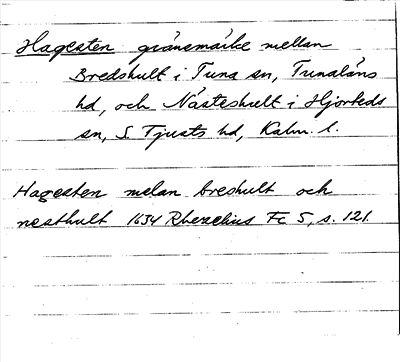 Hagesten gränsmärke mellan
Bredshult i Tuna sn, Tunaläns
hd, och Nästeshult i Hjorteds
sn, S. Tjusts hd, Kalm. l.
Hagesten melan breshult och
nesthult 1634 Rhezelius Fc 5, s. 121.